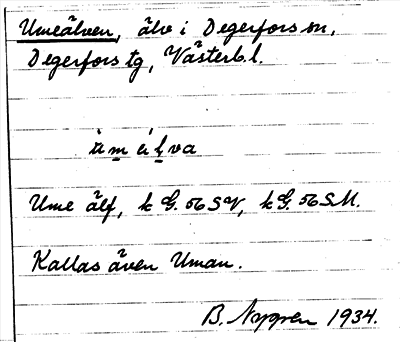 Umeälven, älv i Degerfors sn,
Degerfors tg, Västerb. l.
Ume älf, k G. 56 SV, k G. 56 SM.
Kallas även Uman.
B. Nygren 1934.